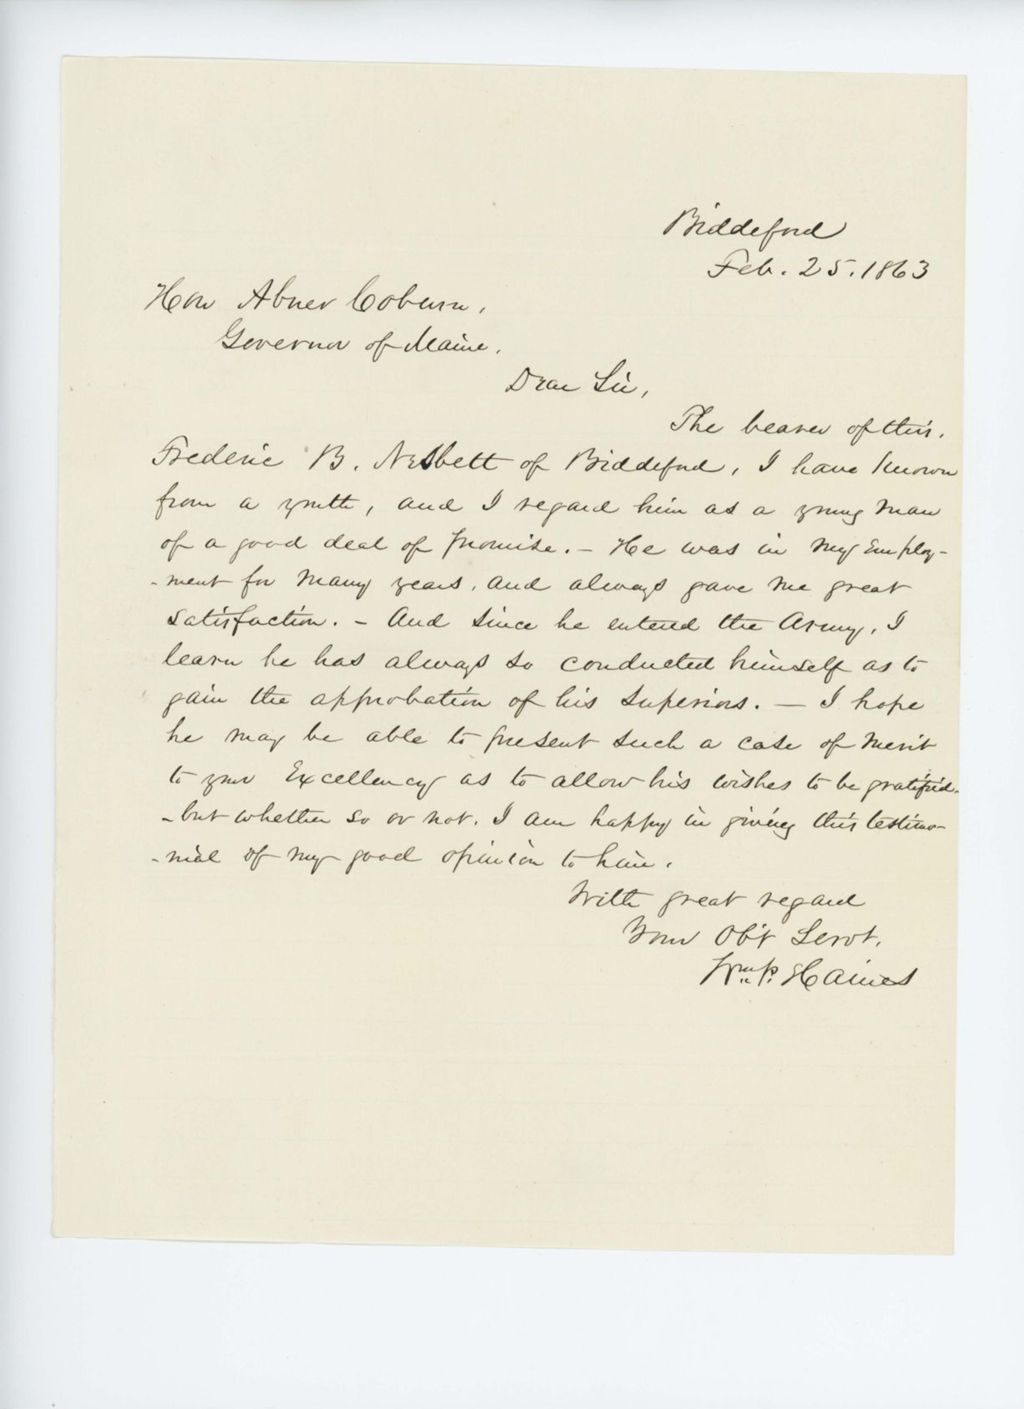 Biddeford
Feb. 25. 1863
Hon Abner Coburn,
Governor of Maine,
Dear Sir,
The bearer of this,
Frederic B. Nesbett of Biddeford, I have known
from a youth, and I regard him as a young man
of a good deal of promise. - He was in my employ-
-ment for many years, and always gave me great
satisfaction. - And since he entered the Army, I
learn he has always so conducted himself as to
gain the approbation of his superiors. — I hope
he may be able to present such a case of merit
to your Excellency as to allow his wishes to be gratified-
-but whether so or not, I am happy in giving this testimo-
-nial of my good opinion to him.
With great regard
Your Obt Servt,
Wm P. Haines